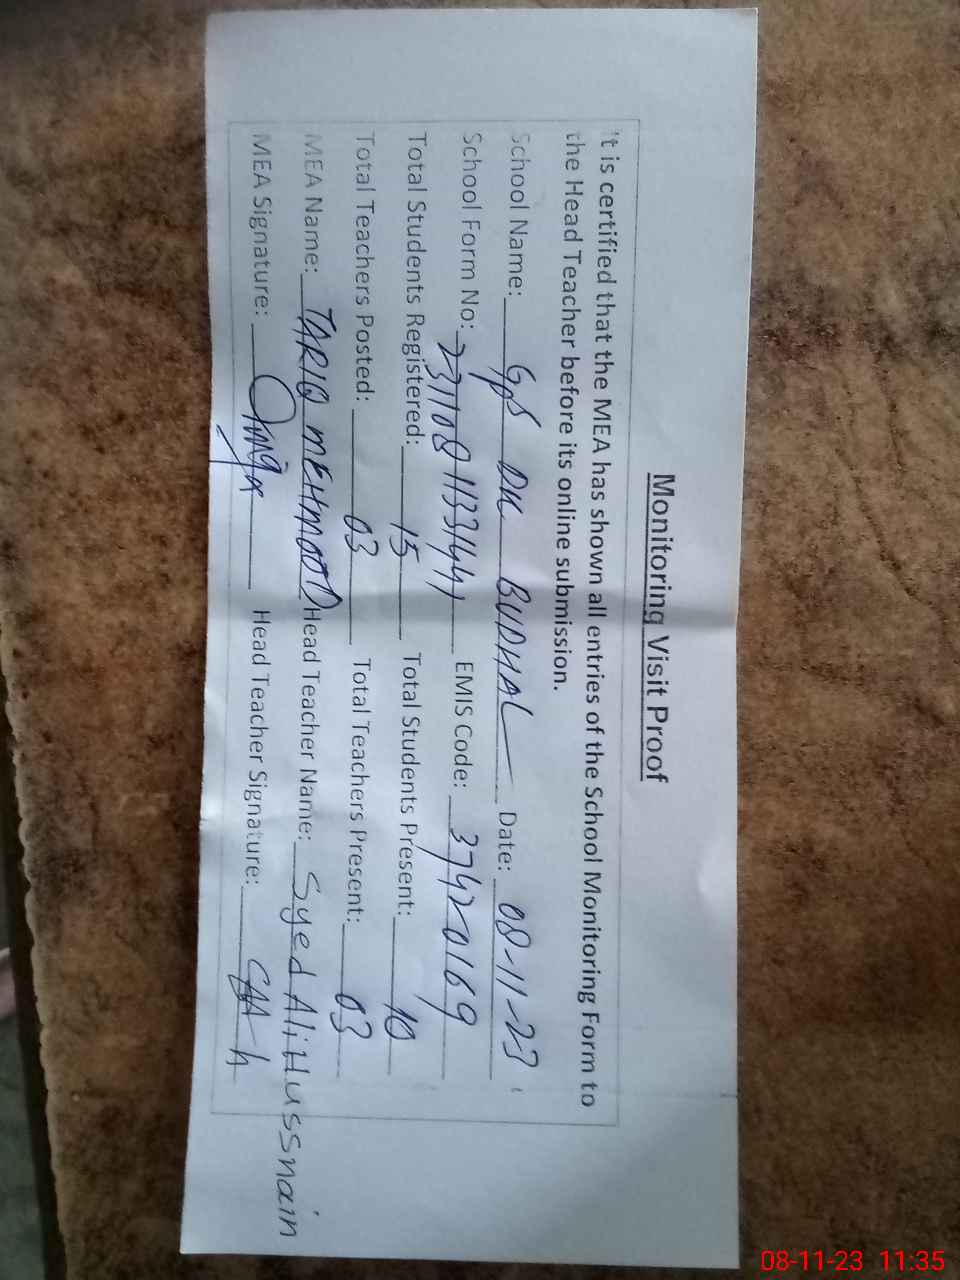 Monitoring Visit Proof
It is certified that the MEA has shown all entries of the School Monitoring Form to
the Head Teacher before its online submission.
School Name: GPS DK BUDHAL Date: 08-11-23
School Form No: EMIS Code: 37420169
Total Students Registered: 15 Total Students Present: 10
Total Teachers Posted: 03 Total Teachers Present: 03
MEA Name: TARIQ MEHMOOD Head Teacher Name: Syed Ali Hussnain
MEA Signature: Head Teacher Signature:
08-11-23 11:35